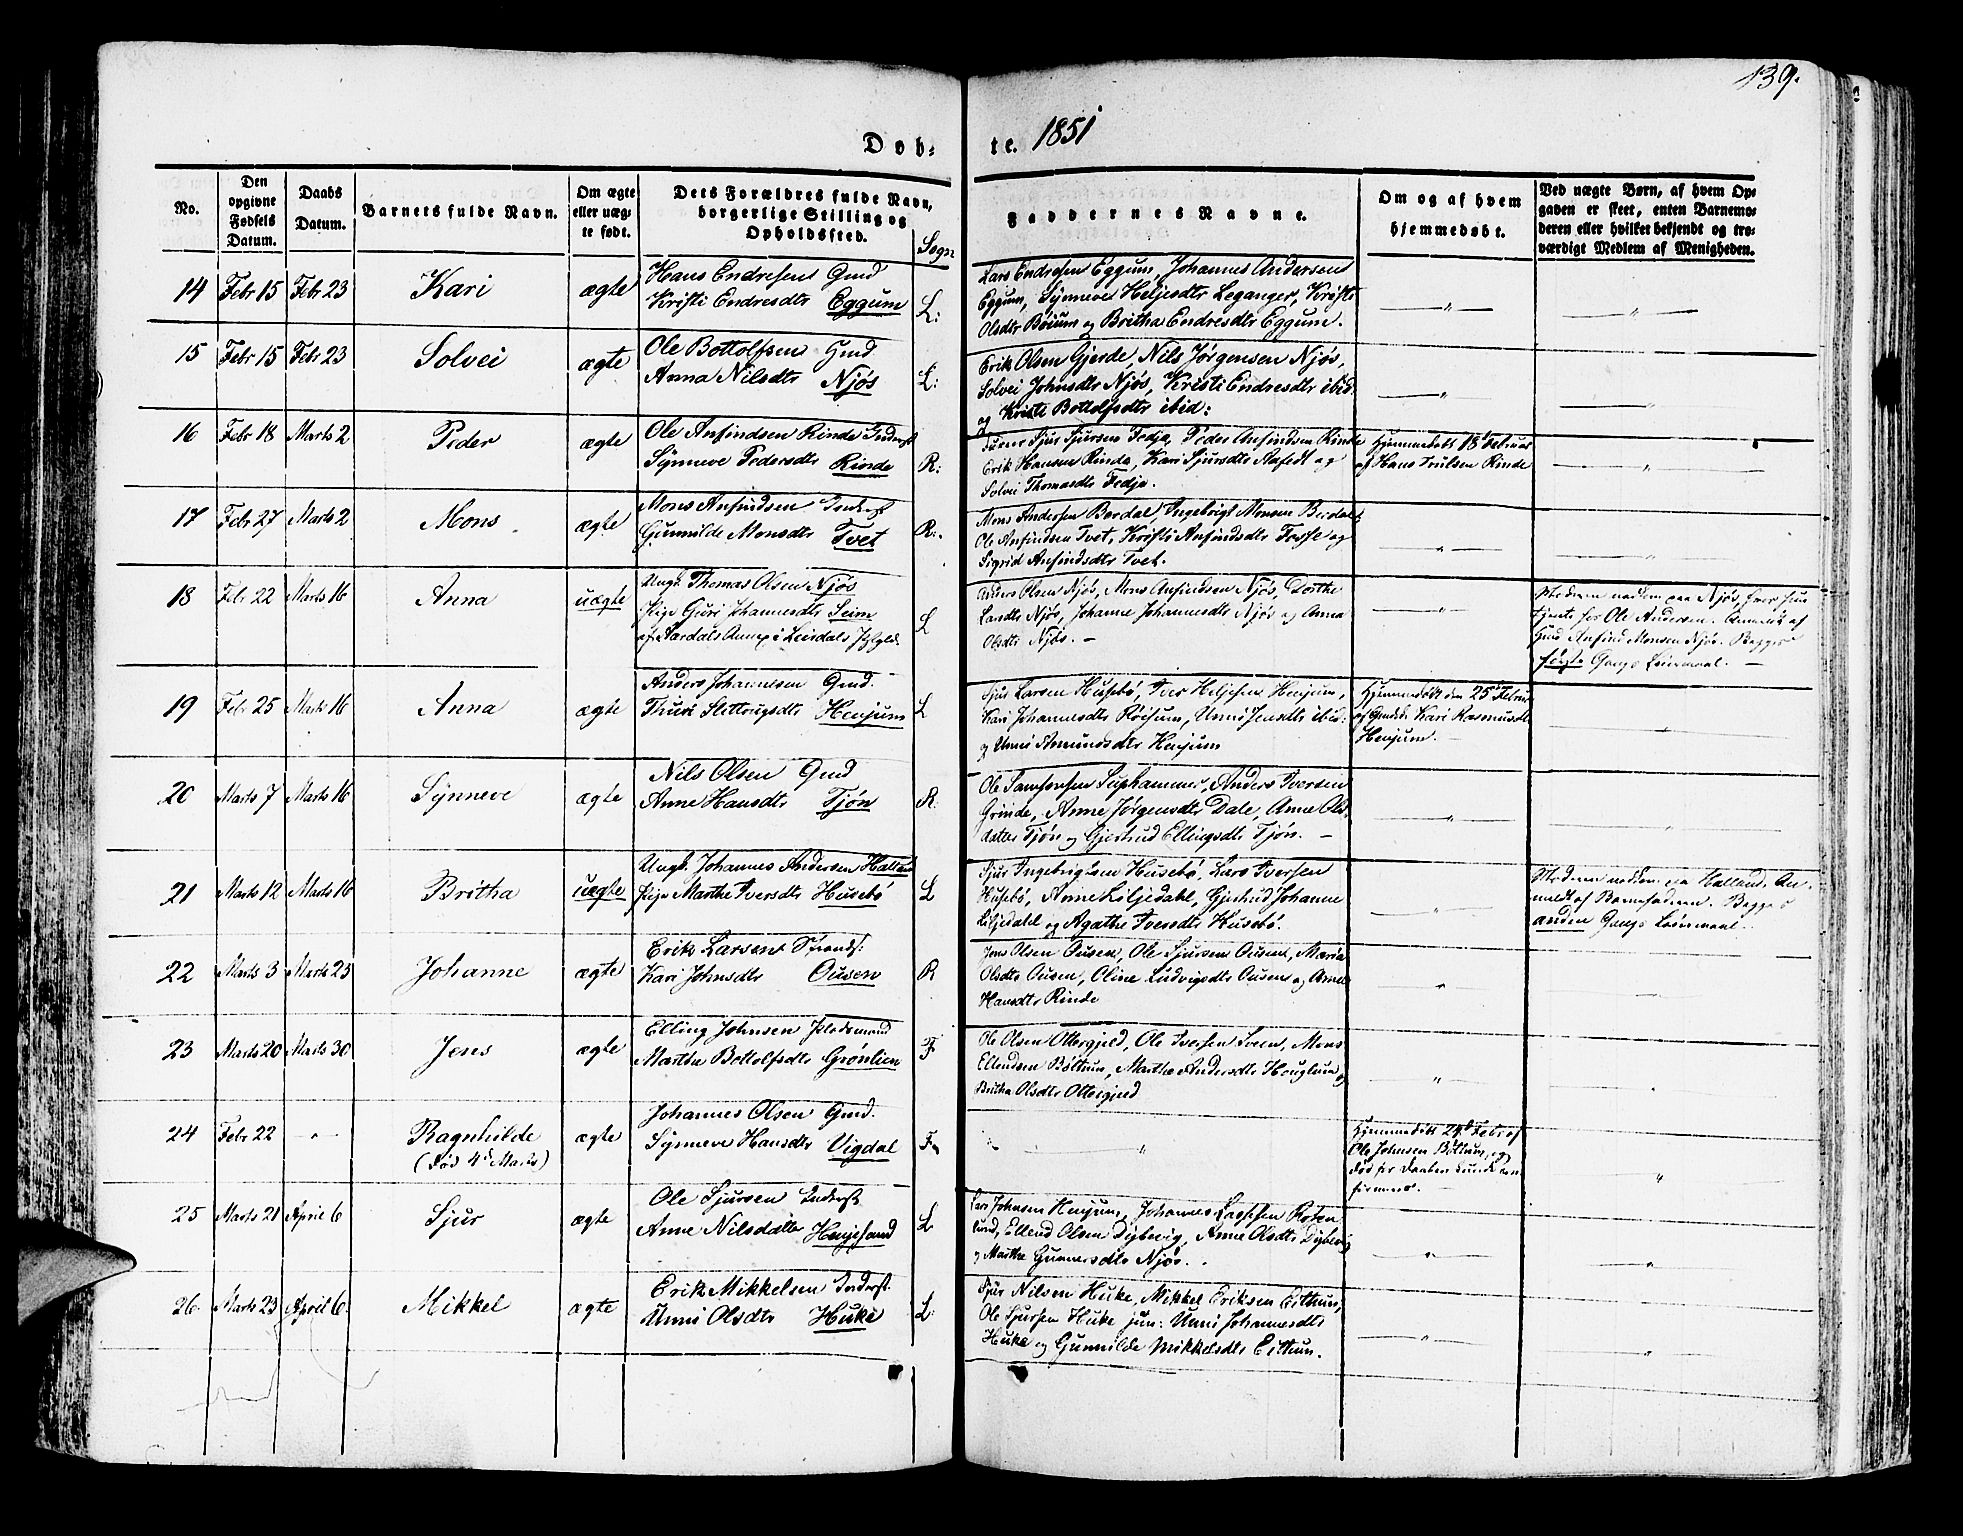 139.
Døb-
te. 1851
No.
Den opgivne Fødsels Datum.
Daabs Datum.
Barnets fulde Navn.
Om ægte eller uægte født.
Dets Forældres fulde Navn, borgerlige Stilling og Opholdssted.
Sogn
Faddernes Navne.
Om og af hvem hjemmedøbt.
Ved uægte Børn, af hvem Opgaven er skeet, enten Barnemoderen eller hvilket bekjendt og troværdigt Medlem af Menigheden.
14 Febr 15 Febr 23 Kari ægte
Hans Endresen Gmd
Kristi Endresdtr Eggum L:
Lars Endresen Eggum, Johannes Andersen
Eggum, Synneve Heljesdtr Leganger, Kristi
Olsdtr Böium og Britha Endresdtr Eggum.
15 Febr 15 Febr 23 Solvei ægte
Ole Bottolfsen Gmd
Anna Nilsdtr Njøs L:
Erik Olsen Gjerde, Nils Jørgensen Njøs,
Solvei Johnsdtr Njøs, Kristi Endresdtr ibid
og Kristi Bottolfsdtr ibid:
16 Febr 18 Marts 2 Peder ægte
Ole Anfindsen Rinde Inderst
Synneve Pedersdtr Rinde R:
Sjur Sjursen Fedje, Peder Anfindsen Rinde
Erik Hansen Rinde, Kari Sjursdtr Aafedt og
Solvei Thomasdtr Fedje.
Hjemmedøbt 18 Februar
af Hans Trulsen Rinde
17 Febr 27 Marts 2 Mons ægte
Mons Anfindsen Inderst
Gunnilde Monsdtr Tvet R:
Mons Andersen Berdal, Ingebrigt Monsen Berdal
Ole Anfindsen Tvet, Kristi Anfindsdtr Fosse og
Sigrid Anfindsdtr Tvet.
18 Febr 22 Marts 16 Anna uægte
Ungk. Thomas Olsen Njøs
Pige Guri Johannesdtr Seim
af Aardals Annex i Leirdals Pgjeld. L
Anders Olsen Njøs, Mons Anfindsen Njøs, Dorthe
Larsdtr Njøs, Johanne Johannesdtr Njøs og Anna
Olsdtr Njøs. –
Moderen nedkom paa Njøs, hvor hun
tjente for Ole Andersen. Anmeldt af
Gmd Anfind Monsen Njøs. Begges
første Gangs Leiermaal. –
19 Febr 25 Marts 16 Anna ægte
Anders Johannesen Gmd.
Thuri Slettrugsdtr Henjum L
Sjur Larsen Husebö, Iver Heljesen Henjum,
Kari Johannesdtr Röisum, Unni Jensdtr ibid.
og Unni Amundsdtr Henjum
Hjemmedøbt den 25 Februar
af Gmdsk. Kari Rasmusdtr
Henjum.
20 Marts 7 Marts 16 Synneve ægte
Nils Olsen Gmd
Anne Hansdtr Tjøn R:
Ole Samsonsen Suphammer, Anders Iversen
Grinde, Anne Jørgensdtr Dale, Anne Ols-
datter Tjøn og Gjertrud Ellingsdtr Tjøn. –
21 Marts 12 Marts 16 Britha uægte
Ungk. Johannes Andersen Halland
Pige Marthe Iversdtr Husebö L
Sjur Ingebrigtsen Husebö, Lars Iversen
Husebö, Anne Liljedahl, Gjertrud Johanne
Liljedahl og Agathe Iversdtr Husebö.
Moderen nedkom paa Halland. An-
meldt af Barnefaderen. Begges
anden Gangs Leiermaal.
22 Marts 3 Marts 23 Johanne ægte
Erik Larsen Strands:
Kari Johnsdtr Ousen R
Jens Olsen Ousen, Ole Sjursen Ousen, Maria
Olsdtr Ousen, Oline Ludvigsdtr Ousen og Anne
Hansdtr Rinde
23 Marts 20 Marts 30 Jens ægte
Elling Johnsen Pladsmand
Marthe Bottolfsdtr Grønlien F
Ole Olsen Ottergjed, Ole Iversen Sveen, Mons
Ellendsen Böttum, Marthe Andersdtr Houglum og
Britha Olsdtr Ottergjed
24 Febr 22 Ragnhilde
(død 4de Marts) ægte
Johannes Olsen Gmd.
Synneve Hansdtr Vigdal F
Hjemmedøbt 24de Febr af
Ole Johnsen Böttum, og
død før Daaben kunde con-
firmeres.
25 Marts 21 April 6 Sjur ægte
Ole Sjursen Inderst
Anne Nilsdatter Henjesand L
Lars Johnsen Henjum, Johannes Lassesen Roten
lund, Ellend Olsen Dybevig, Anne Olsdtr Dybevig
og Marthe Gunnersdtr Njøs.
26 Marts 23 April 6 Mikkel ægte
Erik Mikkelsen Inderst
Unni Olsdtr Huke L:
Sjur Nilsen Huke, Mikkel Eriksen Eithun,
Ole Sjursen Huke jun: Unni Johannesdtr
Huke og Gunnilde Mikkelsdtr Eithun.